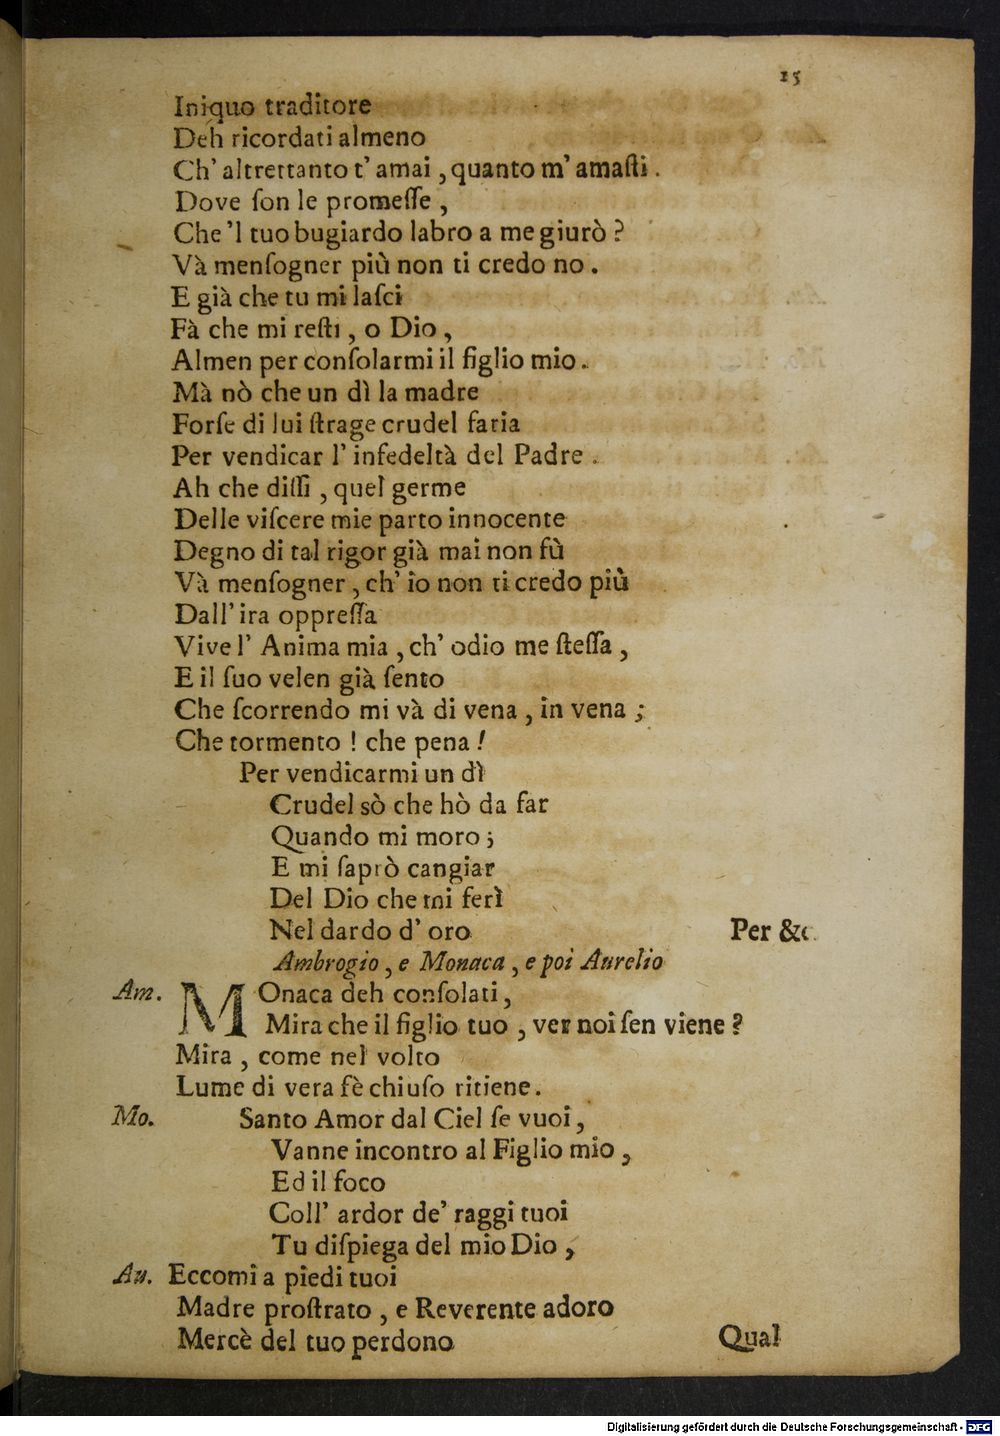 15
Iniquo traditore
Deh ricordati almeno
Ch' altrettanto t' amai , quanto m' amaſti .
Dove ſon le promeſſe ,
Che 'l tuo bugiardo labro a me giurò ?
Và menſogner più non ti credo no .
E già che tu mi laſci
Fà che mi reſti , o Dio ,
Almen per conſolarmi il figlio mio .
Mà nò che un dì la madre
Forſe di lui ſtrage crudel faria
Per vendicar l' infedeltà del Padre .
Ah che diſſi , quel germe
Delle viſcere mie parto innocente
Degno di tal rigor già mai non fù
Và menſogner , ch' io non ti credo più
Dall' ira oppreſſa
Vive l' Anima mia , ch' odio me ſteſſa ,
E il ſuo velen già ſento
Che ſcorrendo mi và di vena , in vena ;
Che tormento ! che pena !
Per vendicarmi un dì
Crudel sò che hò da far
Quando mi moro ;
E mi ſaprò cangiar
Del Dio che mi ferì
Nel dardo d' oro Per &c.
Ambrogio , e Monaca , e poi Aurelio
Am. MOnaca deh conſolati ,
Mira che il figlio tuo , ver noi ſen viene ?
Mira , come nel volto
Lume di vera fè chiuſo ritiene .
Mo. Santo Amor dal Ciel ſe vuoi ,
Vanne incontro al Figlio mio ,
Ed il foco
Coll' ardor de' raggi tuoi
Tu diſpiega del mio Dio ,
Au. Eccomi a piedi tuoi
Madre proſtrato , e Reverente adoro
Mercè del tuo perdono Qual
Digitalisierung gefördert durch die Deutsche Forschungsgemeinschaft - DFG